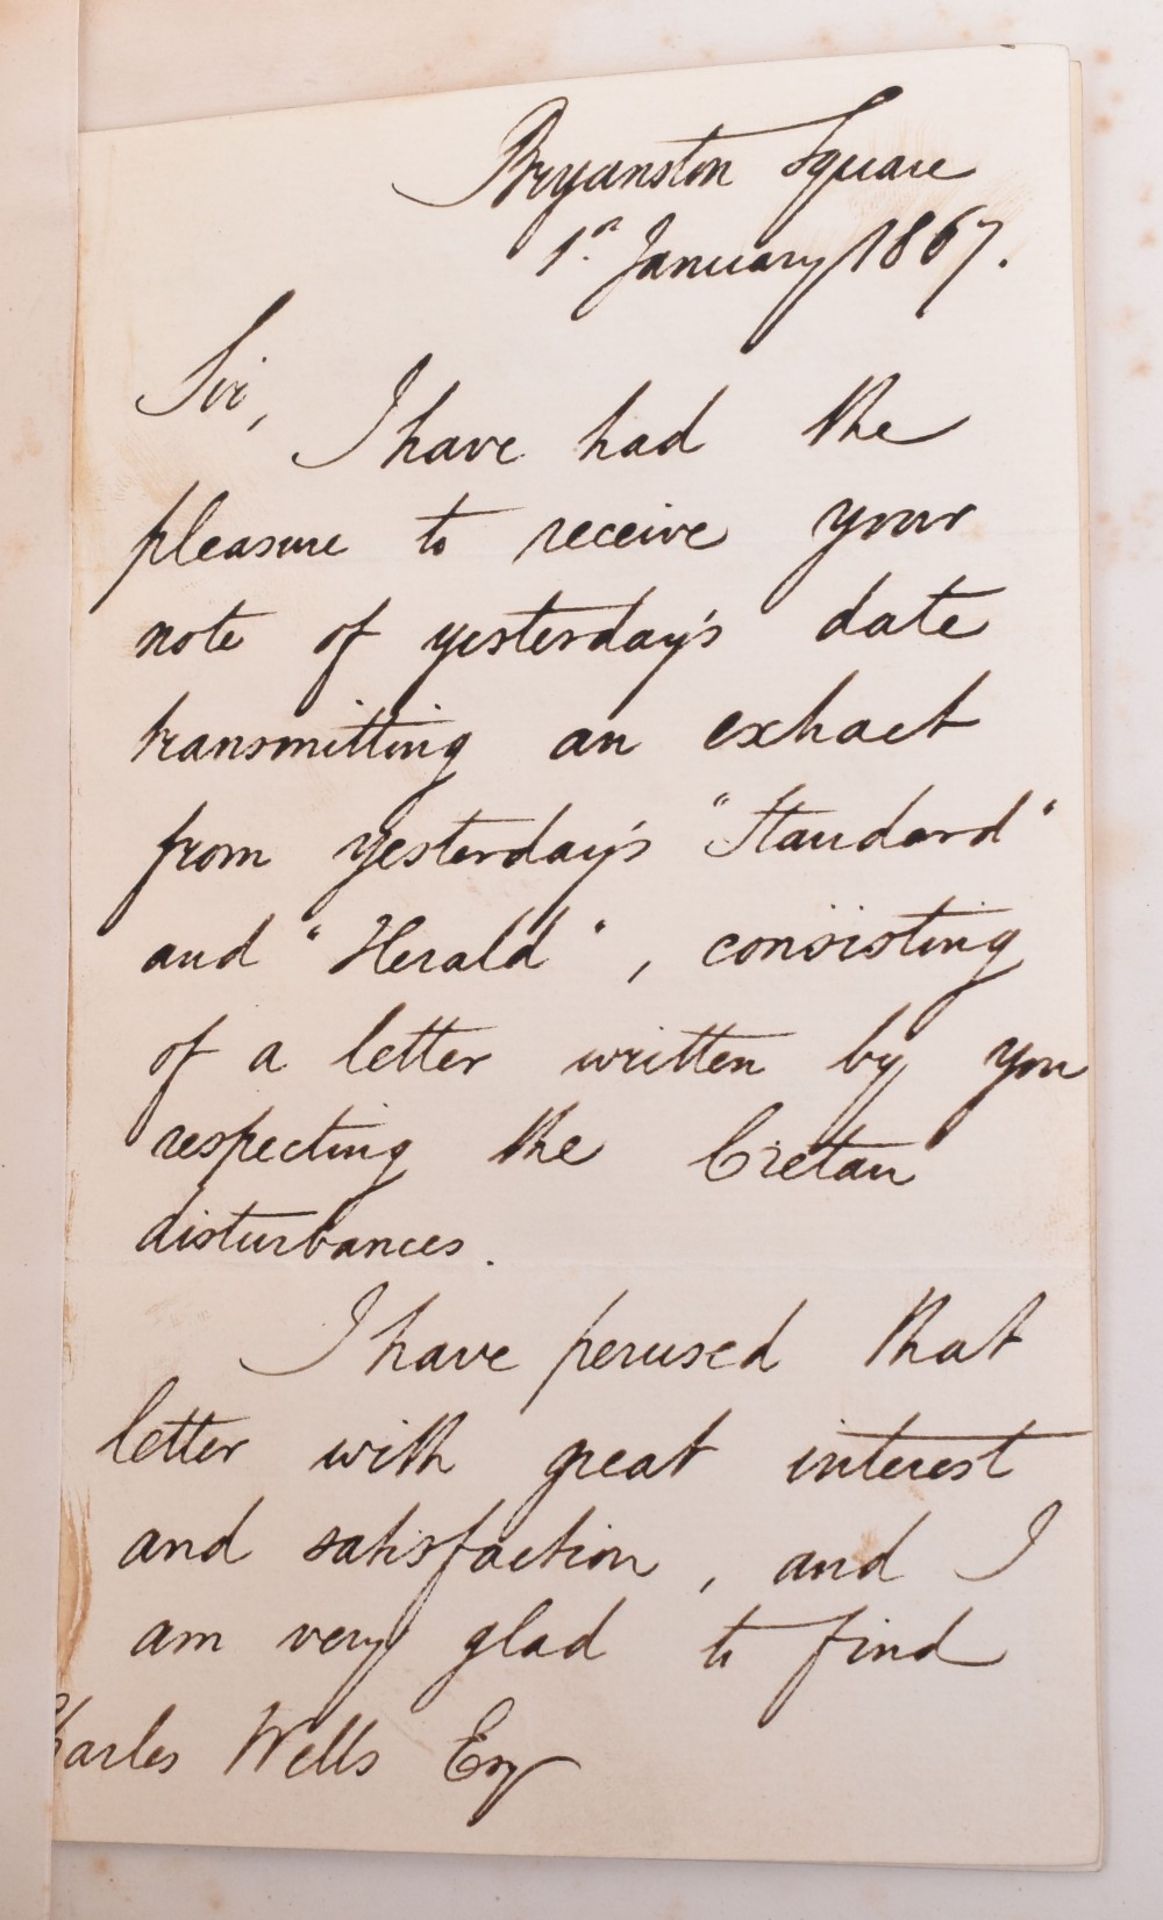 Bryanston Square
1st January 1867.
Sir,
I have had the
pleasure to receive your
note of yesterday's date
transmitting an extract
from yesterday's "Standard"
and "Herald", consisting
of a letter written by you
respecting the Cretan
disturbances.
I have perused that
letter with great interest
and satisfaction, and I
am very glad to find
Charles Wells Esq